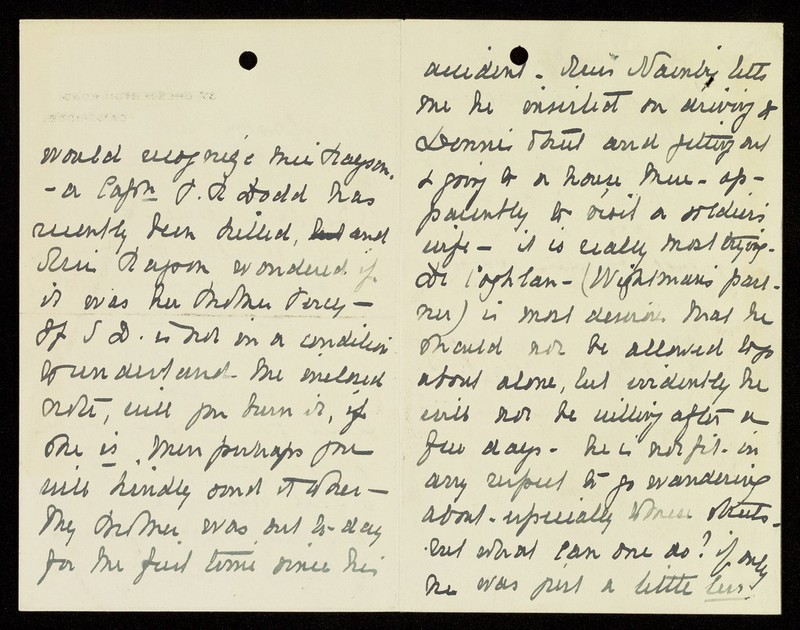 would recognize Miss Rayson.
- a Captn P. R Dodd has
recently been killed, but and
Miss Rayson wondered if
it was her brother Percy -
If S D. is not in a condition
to understand the enclosed
note, will you burn it, if
she is, then perhaps you
will kindly send it to her -
My brother was out to-day
for the first time since his
accident - Miss tells
me he insisted on driving to
Dennis Street and getting out
& going to a house there - ap-
parently to visit a soldier's
wife - it is really most trying -
Dr Coghlan - (Wightman's part-
ner) is most desirous that he
should not be allowed to go
about alone, but evidently he
will not be willing after a
few days - he is not fit - in
any respect to go wandering
about - especially those streets -
but what can one do? if only
he was just a little less